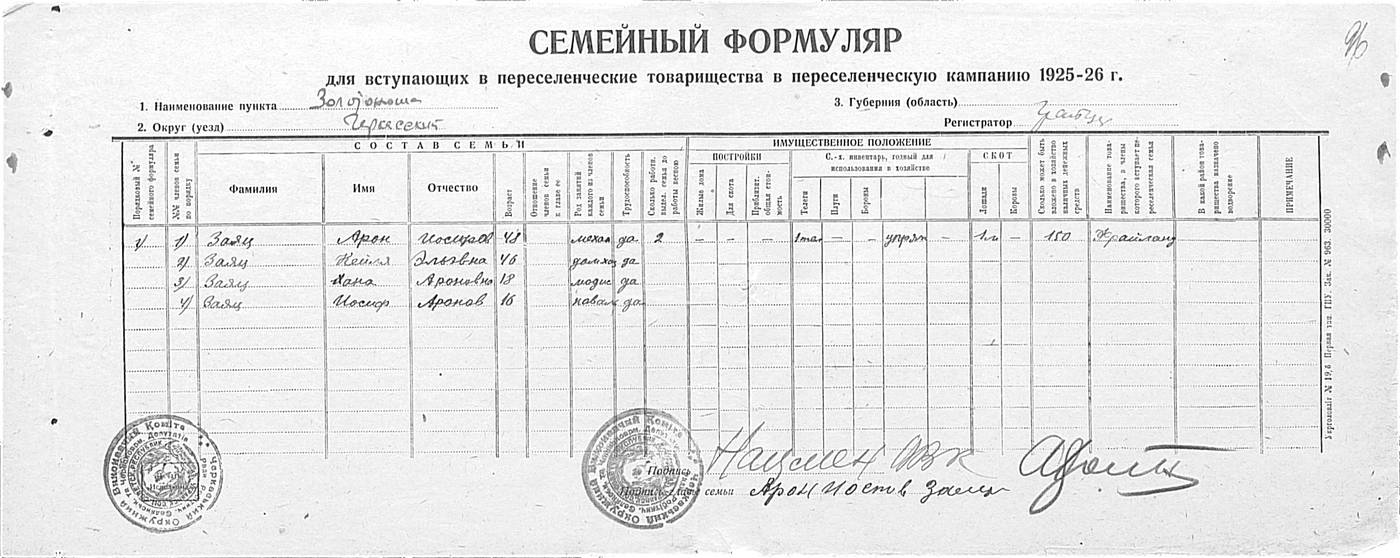 96
СЕМЕЙНЫЙ ФОРМУЛЯР
для вступающих в переселенческие товарищества в переселенческую кампанию 1925-26 г.
1. Наименование пункта Золотоноша
3. Губерния (область)
2. Округ (уезд) Черкасский
Регистратор
СОСТАВ СЕМЬИ
ИМУЩЕСТВЕННОЕ ПОЛОЖЕНИЕ
ПОСТРОЙКИ
С.-х. инвентарь, годный для использования в хозяйстве
СКОТ
Порядковый № семейного формуляра
№№ членов семьи по порядку
Фамилия
Имя
Отчество
Возраст
Отношение членов семьи к главе ее
Род занятий каждого из членов семьи
Трудоспособность
Сколько работн. выдел. семья до работы весною
Жилые дома
Для скота
Приблизит. общая стоимость
Телеги
Плуги
Бороны
Лошади
Коровы
Сколько может быть вложено в хозяйство наличных денежных средств
Наименование товарищества, в члены которого вступает переселенческая семья
В какой район товарищества назначено водворение
ПРИМЕЧАНИЕ
1) 1) Заяц Арон Иосифов 48 механ да 2 – – – – – упряж – 1л – 150 Фрайланд
2) Заяц Нейля 46 домхоз да
3) Заяц Хана Ароновна 18 модис да
4) Заяц Иосиф Аронов 16 да
Укрполіграф № 19,5 Первая тип. ГПУ Зак. № 963. 30000
Черкаський Окружний Виконавчий Комітет
Черкаський Окружний Виконавчий Комітет
Подпись Нацмен ОВК
Подпись главе семьи Арон Заяц